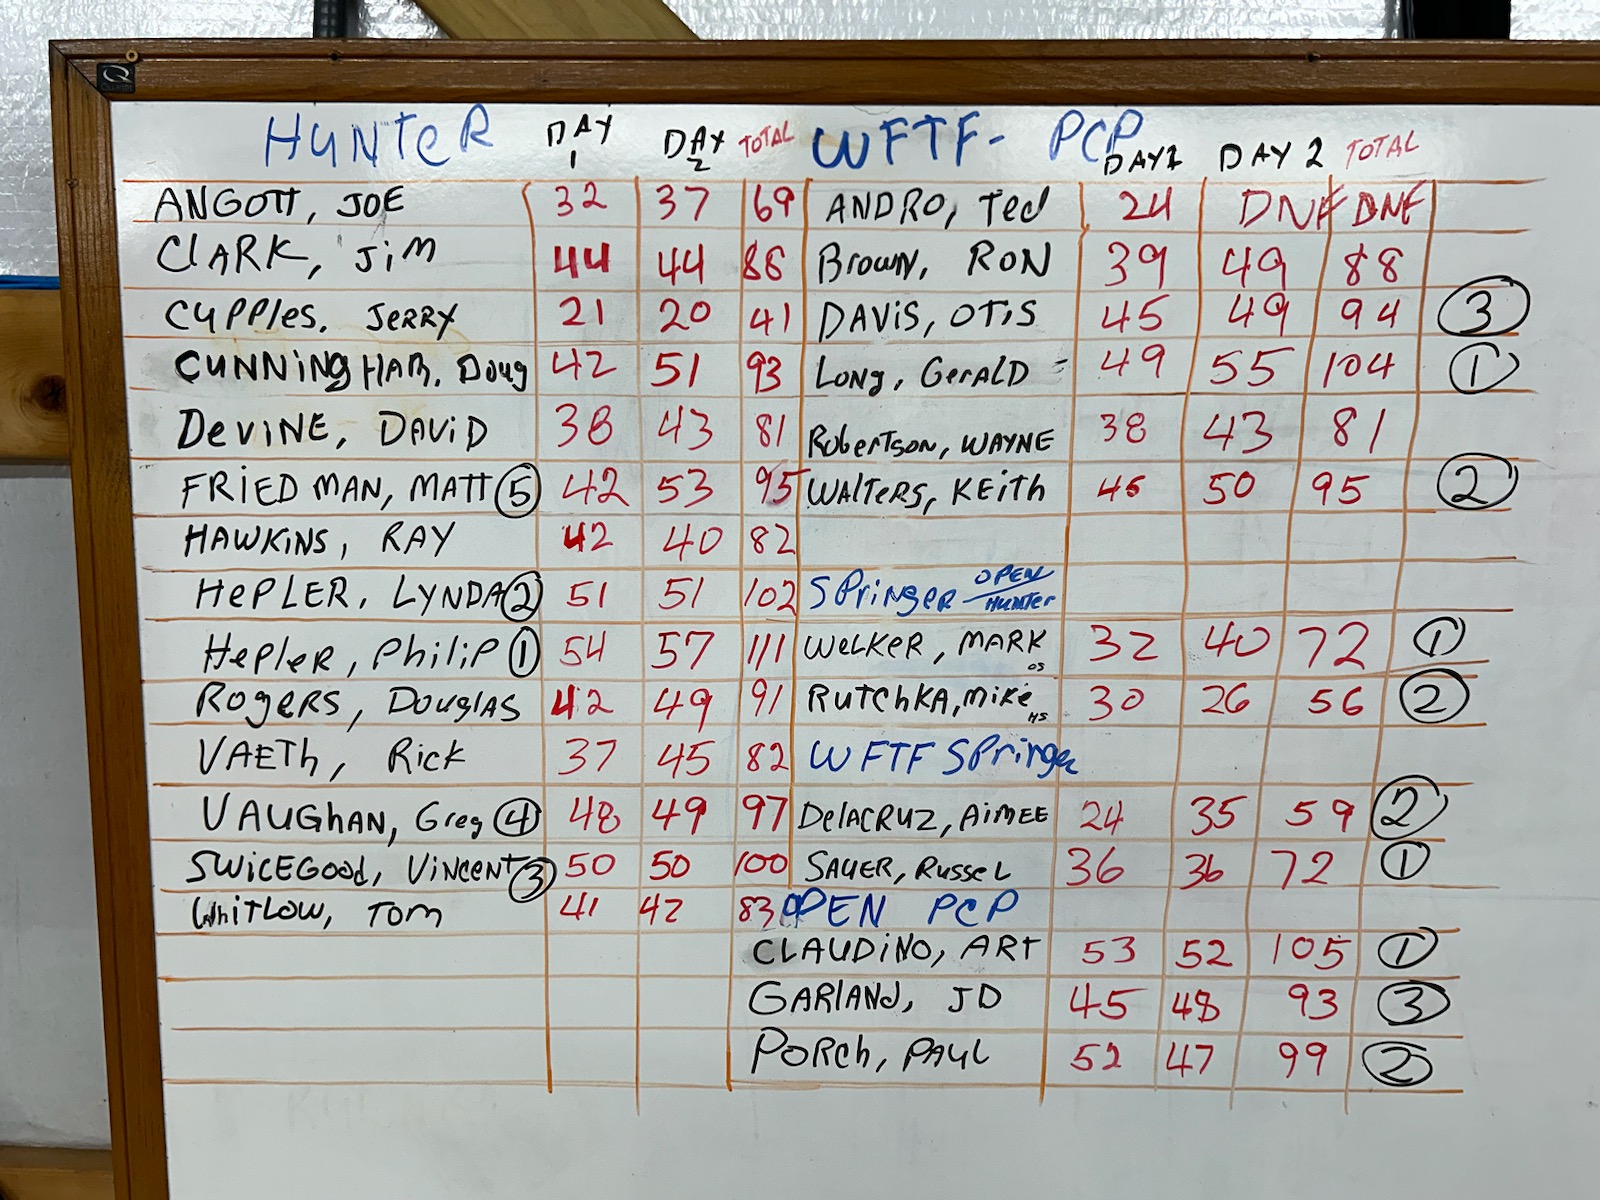 HUNTER DAY 1 DAY 2 TOTAL
ANGOTT, JOE 32 37 69
CLARK, JIM 44 44 88
CUPPLES, JERRY 21 20 41
CUNNINGHAM, Doug 42 51 93
DEVINE, DAVID 38 43 81
FRIEDMAN, MATT 5 42 53 95
HAWKINS, RAY 42 40 82
HEPLER, LYNDA 2 51 51 102
HEPLER, PHILIP 1 54 57 111
ROGERS, DOUGLAS 42 49 91
VAETH, Rick 37 45 82
VAUGHAN, Greg 4 48 49 97
SWICEGOOD, VINCENT 3 50 50 100
WHITLOW, TOM 41 42 83
WFTF- PCP DAY 1 DAY 2 TOTAL
ANDRO, Ted 24 DNF DNF
Brown, RON 39 49 88
DAVIS, OTIS 45 49 94 3
LONG, GERALD 49 55 104 1
Robertson, WAYNE 38 43 81
WALTERS, KEITH 45 50 95 2
SPRINGER OPEN/HUNTER
WELKER, MARK OS 32 40 72 1
RUTCHKA, MIKE HS 30 26 56 2
WFTF SPringer
DELACRUZ, AIMEE 24 35 59 2
SAUER, RUSSEL 36 36 72 1
OPEN PCP
CLAUDINO, ART 53 52 105 1
GARLAND, JD 45 48 93 3
PORCH, PAUL 52 47 99 2